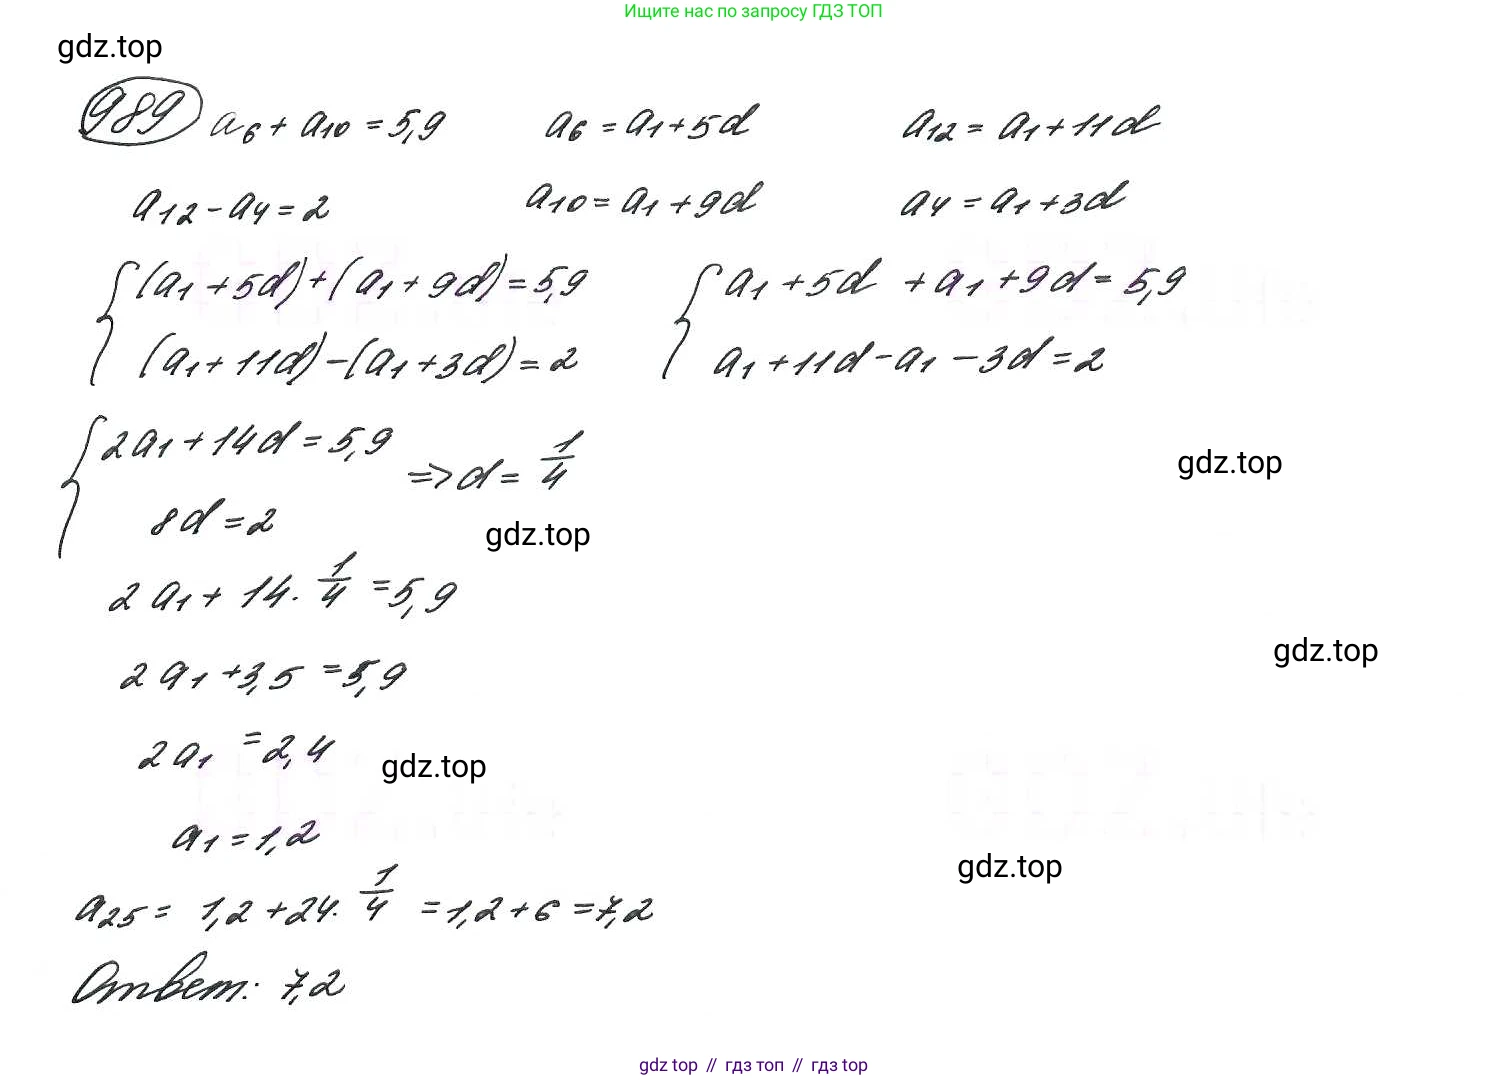 Ищите нас по запросу ГДЗ ТОП
gdz.top
989 a₆ + a₁₀ = 5,9 a₆ = a₁ + 5d a₁₂ = a₁ + 11d
a₁₂ - a₄ = 2 a₁₀ = a₁ + 9d a₄ = a₁ + 3d
{ (a₁ + 5d) + (a₁ + 9d) = 5,9 { a₁ + 5d + a₁ + 9d = 5,9
(a₁ + 11d) - (a₁ + 3d) = 2 a₁ + 11d - a₁ - 3d = 2
{ 2a₁ + 14d = 5,9 => d = 1/4
gdz.top
8d = 2
gdz.top
2a₁ + 14 · 1/4 = 5,9
gdz.top
2a₁ + 3,5 = 5,9
2a₁ = 2,4
gdz.top
a₁ = 1,2
gdz.top
a₂₅ = 1,2 + 24 · 1/4 = 1,2 + 6 = 7,2
Ответ: 7,2
gdz top // гдз топ // гдз top